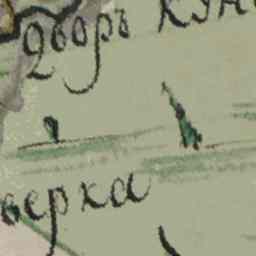 дворъ кун
верха